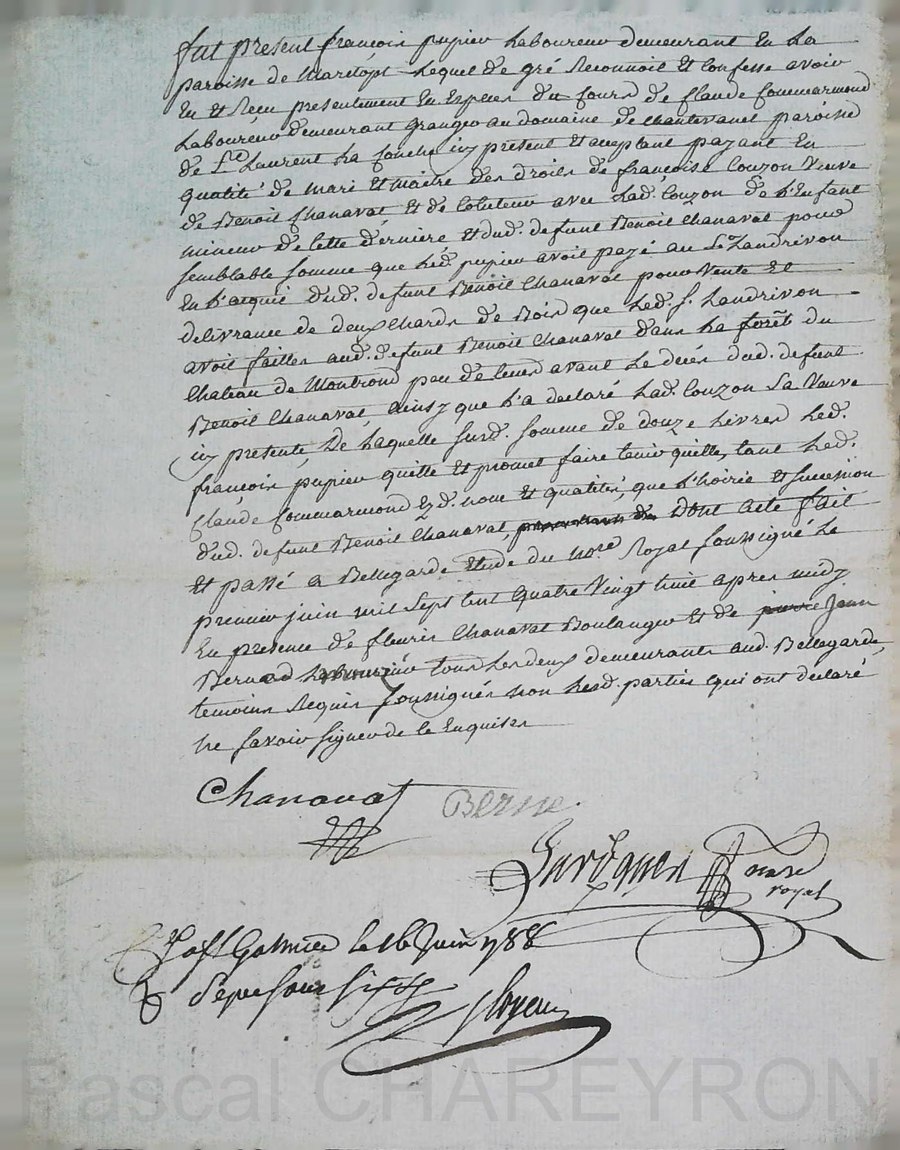 fut present françois pupier Laboureur demeurant En La
paroisse de Marclopt Lequel de gré Reconnoit Et Confesse avoir
Eu Et Reçu presentement En Especes du Cours de Claude Commarmond
Laboureur demeurant granger au domaine de Chantevanel paroisse
de St. Laurent La Conche icy present Et acceptant payant En
qualité de mari Et maitre des droits de françoise Couzon Veuve
de Benoit Chanavat, Et de Cotuteur avec Lad. Couzon de L'Enfant
mineur de Cette derniere Et dud. defunt Benoit Chanavat pour
semblable somme que Led. pupier avoit payé au Sr. Landrivon
En L'acquit dud. defunt Benoit Chanavat pour Vente Et
delivrance de deux Chards de Bois que Led. S. Landrivon
avoit faittes aud. defunt Benoit Chanavat dans La forêt du
Chateau de Montrond peu de tems avant Le decés dud. defunt
Benoit Chanavat, ainsy que L'a declaré Lad. Couzon Sa Veuve
icy presente, De Laquelle surd. somme de douze Livres Led.
françois pupier quitte Et promet faire tenir quitte, tant Led.
Claude Commarmond Ezd. nom Et qualités, que L'hoirie Et succession
dud. defunt Benoit Chanavat, Dont acte fait
Et passé a Bellegarde Etude du nore. Royal soussigné Le
premier juin mil Sept Cent quatre Vingt huit apres midy
En presence de fleuris Chanavat Boulanger Et de pierre Jean
Bernard Laboureur tous Les deux demeurants aud. Bellegarde,
temoins Requis soussignés non Lesd. parties qui ont declaré
ne savoir signer de Ce Enquises
Chanavat Berne.
nore
royal
Galmier le 16 Juin 1788
Pascal CHAREYRON